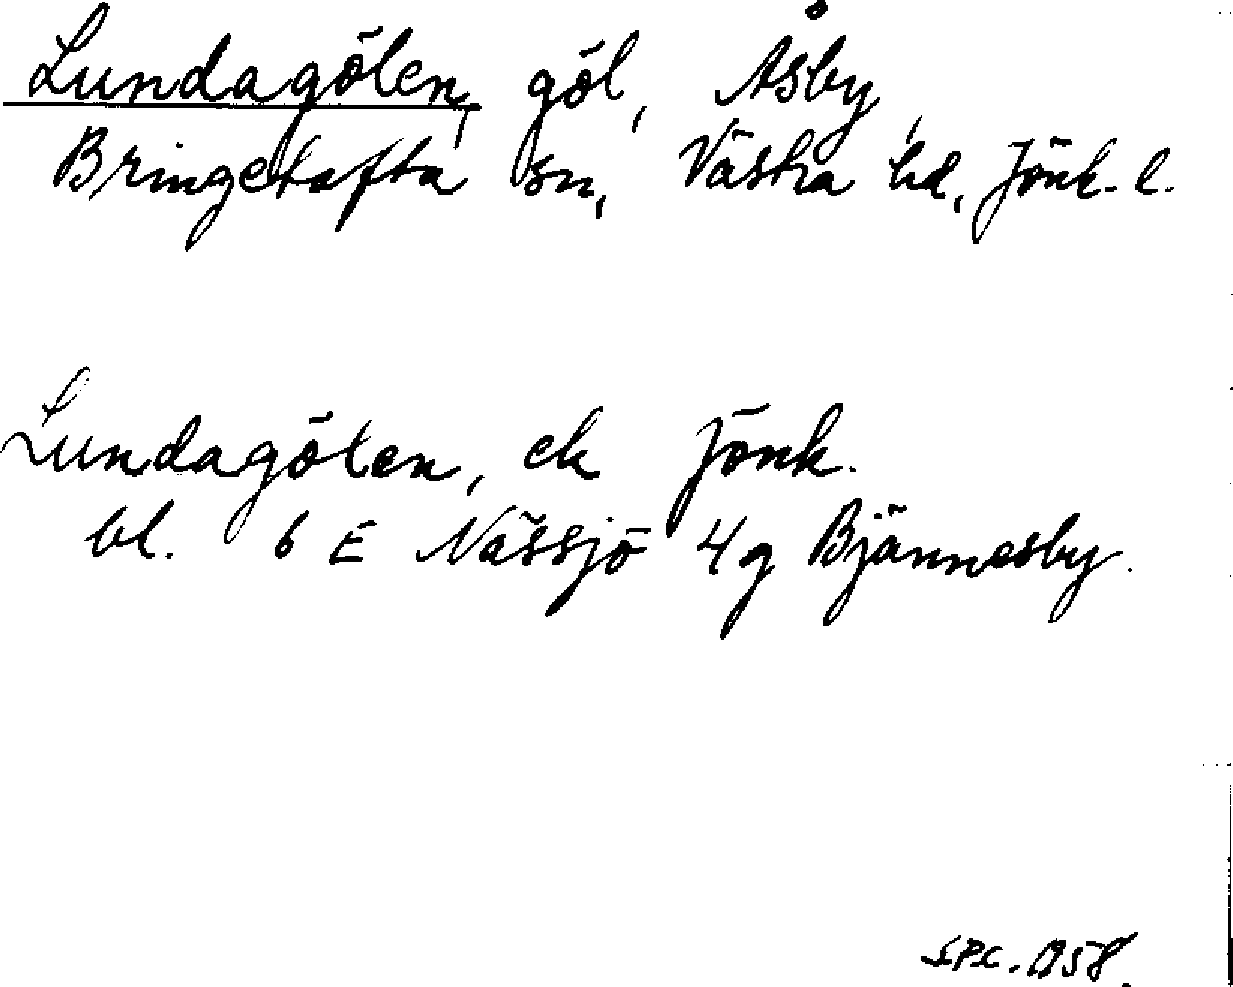 Lundagölen, göl, Åsby,
Bringetofta sn, Västra hd, Jönk. l.
Lundagölen, ek Jönk.
bl. 6 E Nässjö 4g Bjännesby.
SPC. 1958.